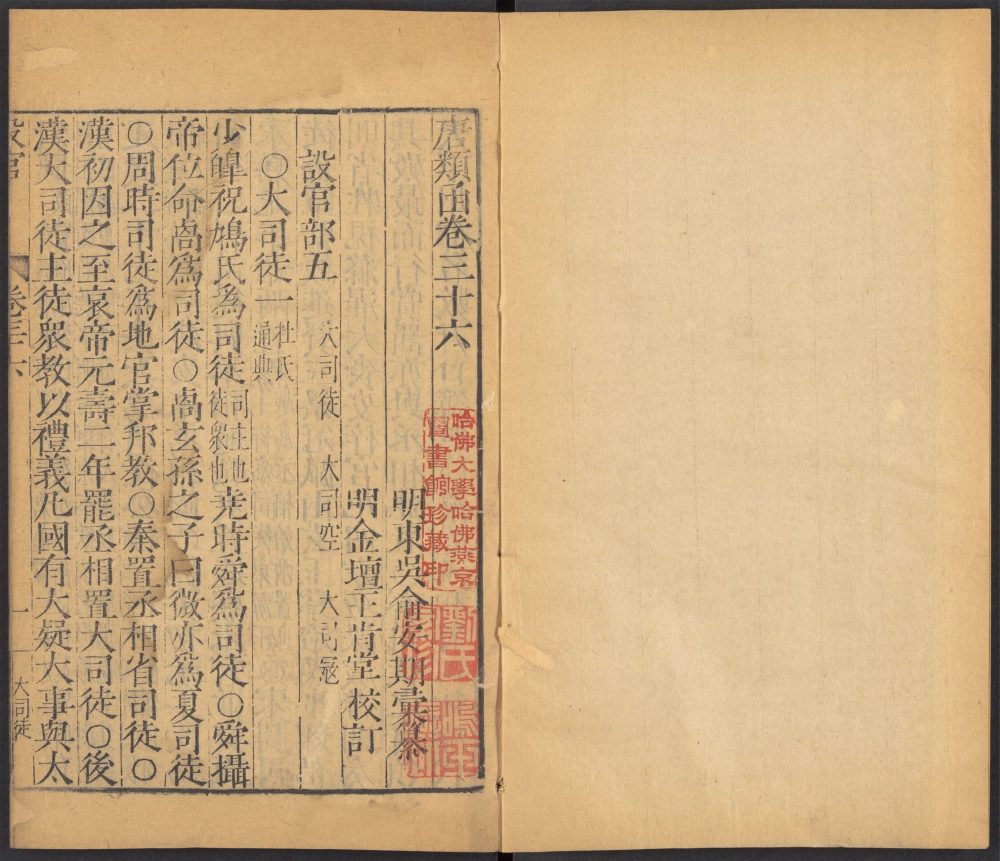 唐類函卷三十六
明東吳俞安期彙纂
明金壇王肯堂校訂
設官部五
大司徒 大司空 大司寇
〇大司徒一 杜氏通典
少皞祝鳩氏為司徒 司主也徒衆也 堯時舜爲司徒〇舜攝
帝位命卨爲司徒〇卨玄孫之子曰微亦爲夏司徒
〇周時司徒爲地官掌邦教〇秦置丞相省司徒〇
漢初因之至哀帝元壽二年罷丞相置大司徒〇後
漢大司徒主徒衆教以禮義凡國有大疑大事與太
設官
卷三十六
一
大司徒
哈佛大學哈佛燕京
圖書館珍藏印
劉氏